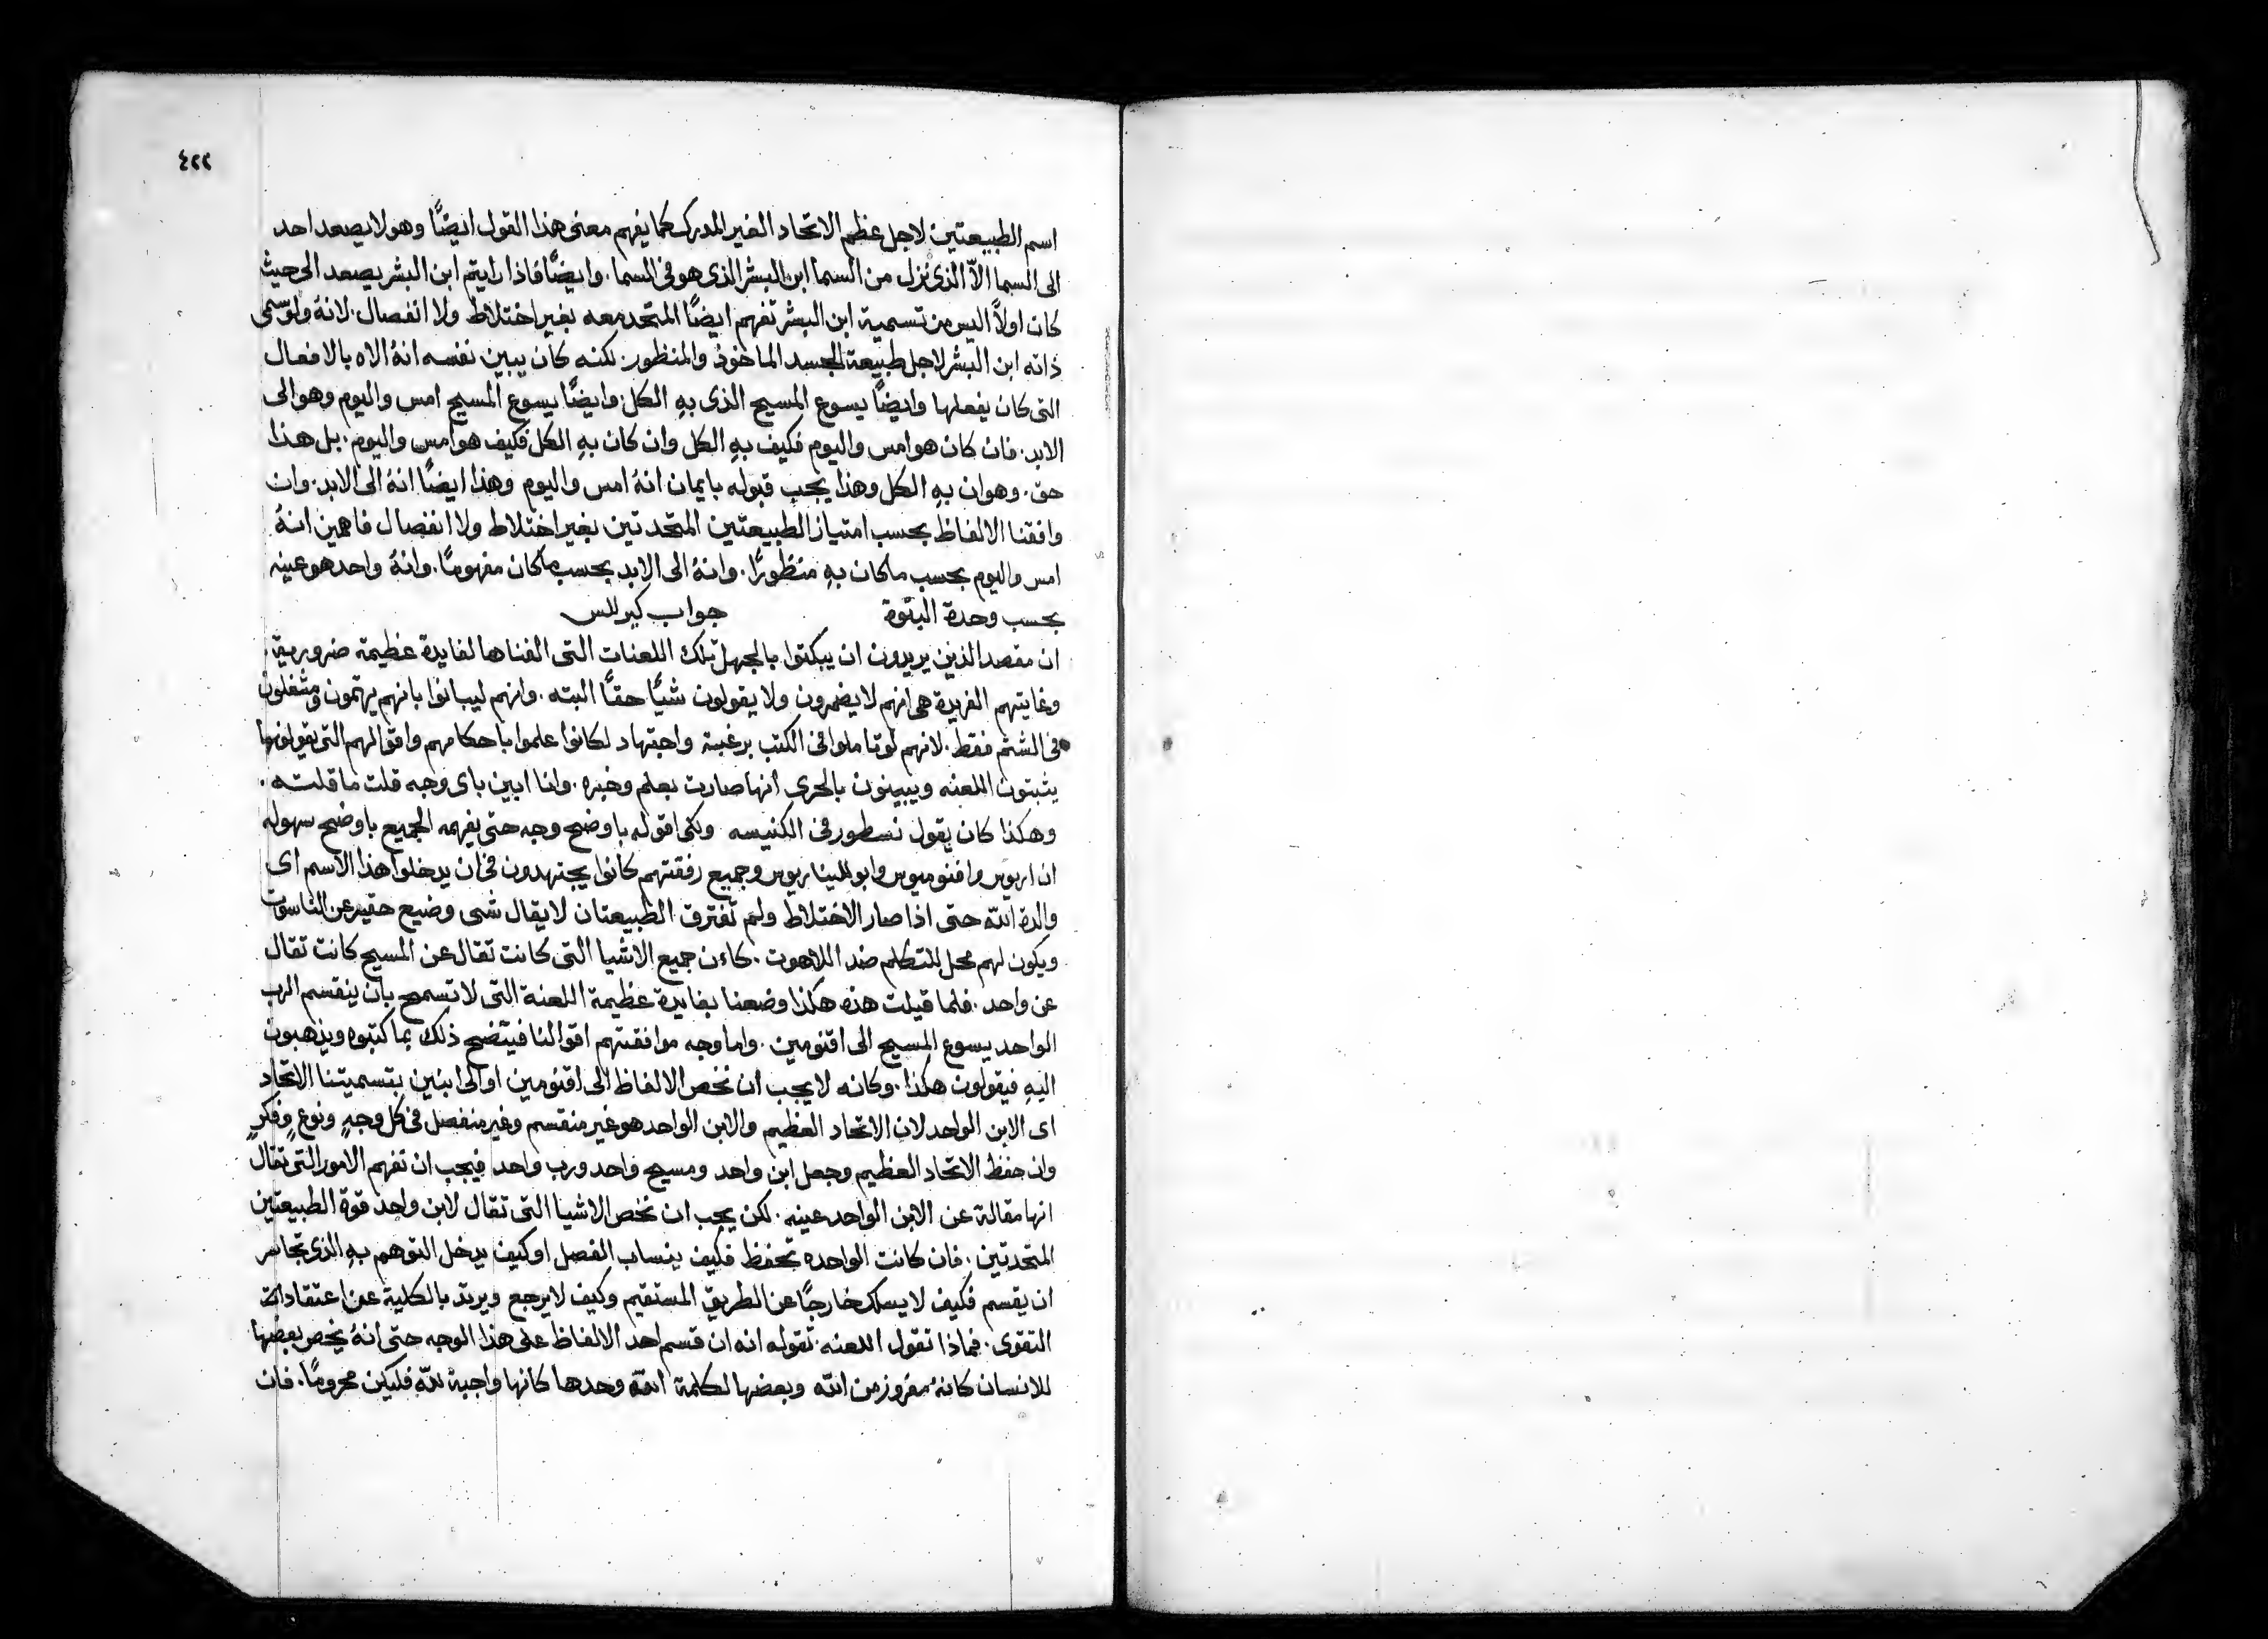 ٤٢٢
اسم الطبيعتين لاجل عظم الاتحاد الغير المدرك كما يفهم معنى هذا القول ايضًا وهو لا يصعد احد
الى السما الّا الذى نزل من السما ابن البشر الذى هو فى السما. وايضًا فاذا رايتم ابن البشر يصعد الى حيث
كان اولًا اليس من تسمية ابن البشر تفهم ايضًا المتحد معه بغير اختلاط ولا انفصال. لانهُ ولو سمى
ذاته ابن البشر لاجل طبيعة الجسد الماخوذ والمنظور. لكنه كان يبين نفسه انهُ الاه بالافعال
التى كان يفعلها وايضًا يسوع المسيح الذى بهِ الكل. وايضًا يسوع المسيح امس واليوم وهو الى
الابد. فان كان هو امس واليوم فكيف بهِ الكل وان كان بهِ الكل فكيف هو امس واليوم. بل هذا
حق. وهو ان بهِ الكل وهذا يجب قبوله بايمان انهُ امس واليوم وهذا ايضًا انهُ الى الابد. وان
وافقنا الالفاظ بحسب امتياز الطبيعتين المتحدتين بغير اختلاط ولا انفصال فاهمين انهُ
امس واليوم بحسب ما كان بهِ منظورًا. وانهُ الى الابد بحسب ما كان مفهومًا. وانهُ واحد هو عينه
بحسب وحدة البنوة جواب كيرللس
ان مقصد الذين يريدون ان يبكتوا بالجهل تلك اللعنات التى الفناها لفايدة عظيمة ضرورية.
وغايتهم الفريدة هى انهم لا يضمرون ولا يقولون شيًا حقًا البته. وانهم ليبانوا بانهم يهتمون ومشغلون
فى الشتم فقط. لانهم لو تاملوا فى الكتب برغبة واجتهاد لكانوا علموا باحكامهم واقوالهم التى يقولونها
يثبتون اللعنه ويبينون بالحرى انها صارت بعلم وخبره. وانا ابين باى وجه قلت ما قلته.
وهكذا كان يقول نسطور فى الكنيسه ولكى اقوله باوضح وجه حتى يفهمه الجميع باوضح سهوله
ان اريوس وافنوميوس وابولليناريوس وجميع رفقتهم كانوا يجتهدون فى ان يدخلوا هذا الاسم اى
والدة الله حتى اذا صار الاختلاط ولم تفترق الطبيعتان لا يقال شى وضيع حقير عن الناسوت
ويكون لهم محل للتكلم ضد اللاهوت. كاءن جميع الاشيا التى كانت تقال عن المسيح كانت تقال
عن واحد. فلما قيلت هذه هكذا وضعنا بفايدة عظيمة اللعنة التى لا تسمح بان ينقسم الرب
الواحد يسوع المسيح الى اقنومين. واما وجه موافقتهم اقوالنا فيتضح ذلك بما كتبوه ويذهبون
اليهِ فيقولون هكذا. وكانه لا يجب ان نخص الالفاظ الى اقنومين او الى ابنين بقسميتنا الاتحاد
اى الابن الواحد لان الاتحاد العظيم والابن الواحد هو غير منقسم وغير منفصل فى كل وجهٍ ونوعٍ وفكرٍ
وان حفظ الاتحاد العظيم وجعل ابن واحد ومسيح واحد ورب واحد فيجب ان تفهم الامور التى تقال
انها مقالة عن الابن الواحد عينه. لكن يجب ان نخص الاشيا التى تقال لابن واحد قوة الطبيعتين
المتحدتين. فان كانت الواحده تحفظ فكيف ينساب الفصل او كيف يدخل التوهم بهِ الذى تجاسر
ان يقسم فكيف لا يسلك خارجًا عن الطريق المستقيم وكيف لا يرجع ويرتد بالكلية عن اعتقادات
التقوى. فماذا تقول اللعنه. تقوله انه ان قسم احد الالفاظ على هذا الوجه حتى انهُ يخص بعضها
للانسان كانهُ مفروز من الله وبعضها لكلمة الله وحدها كانها واجبة لله فليكن محرومًا. فان